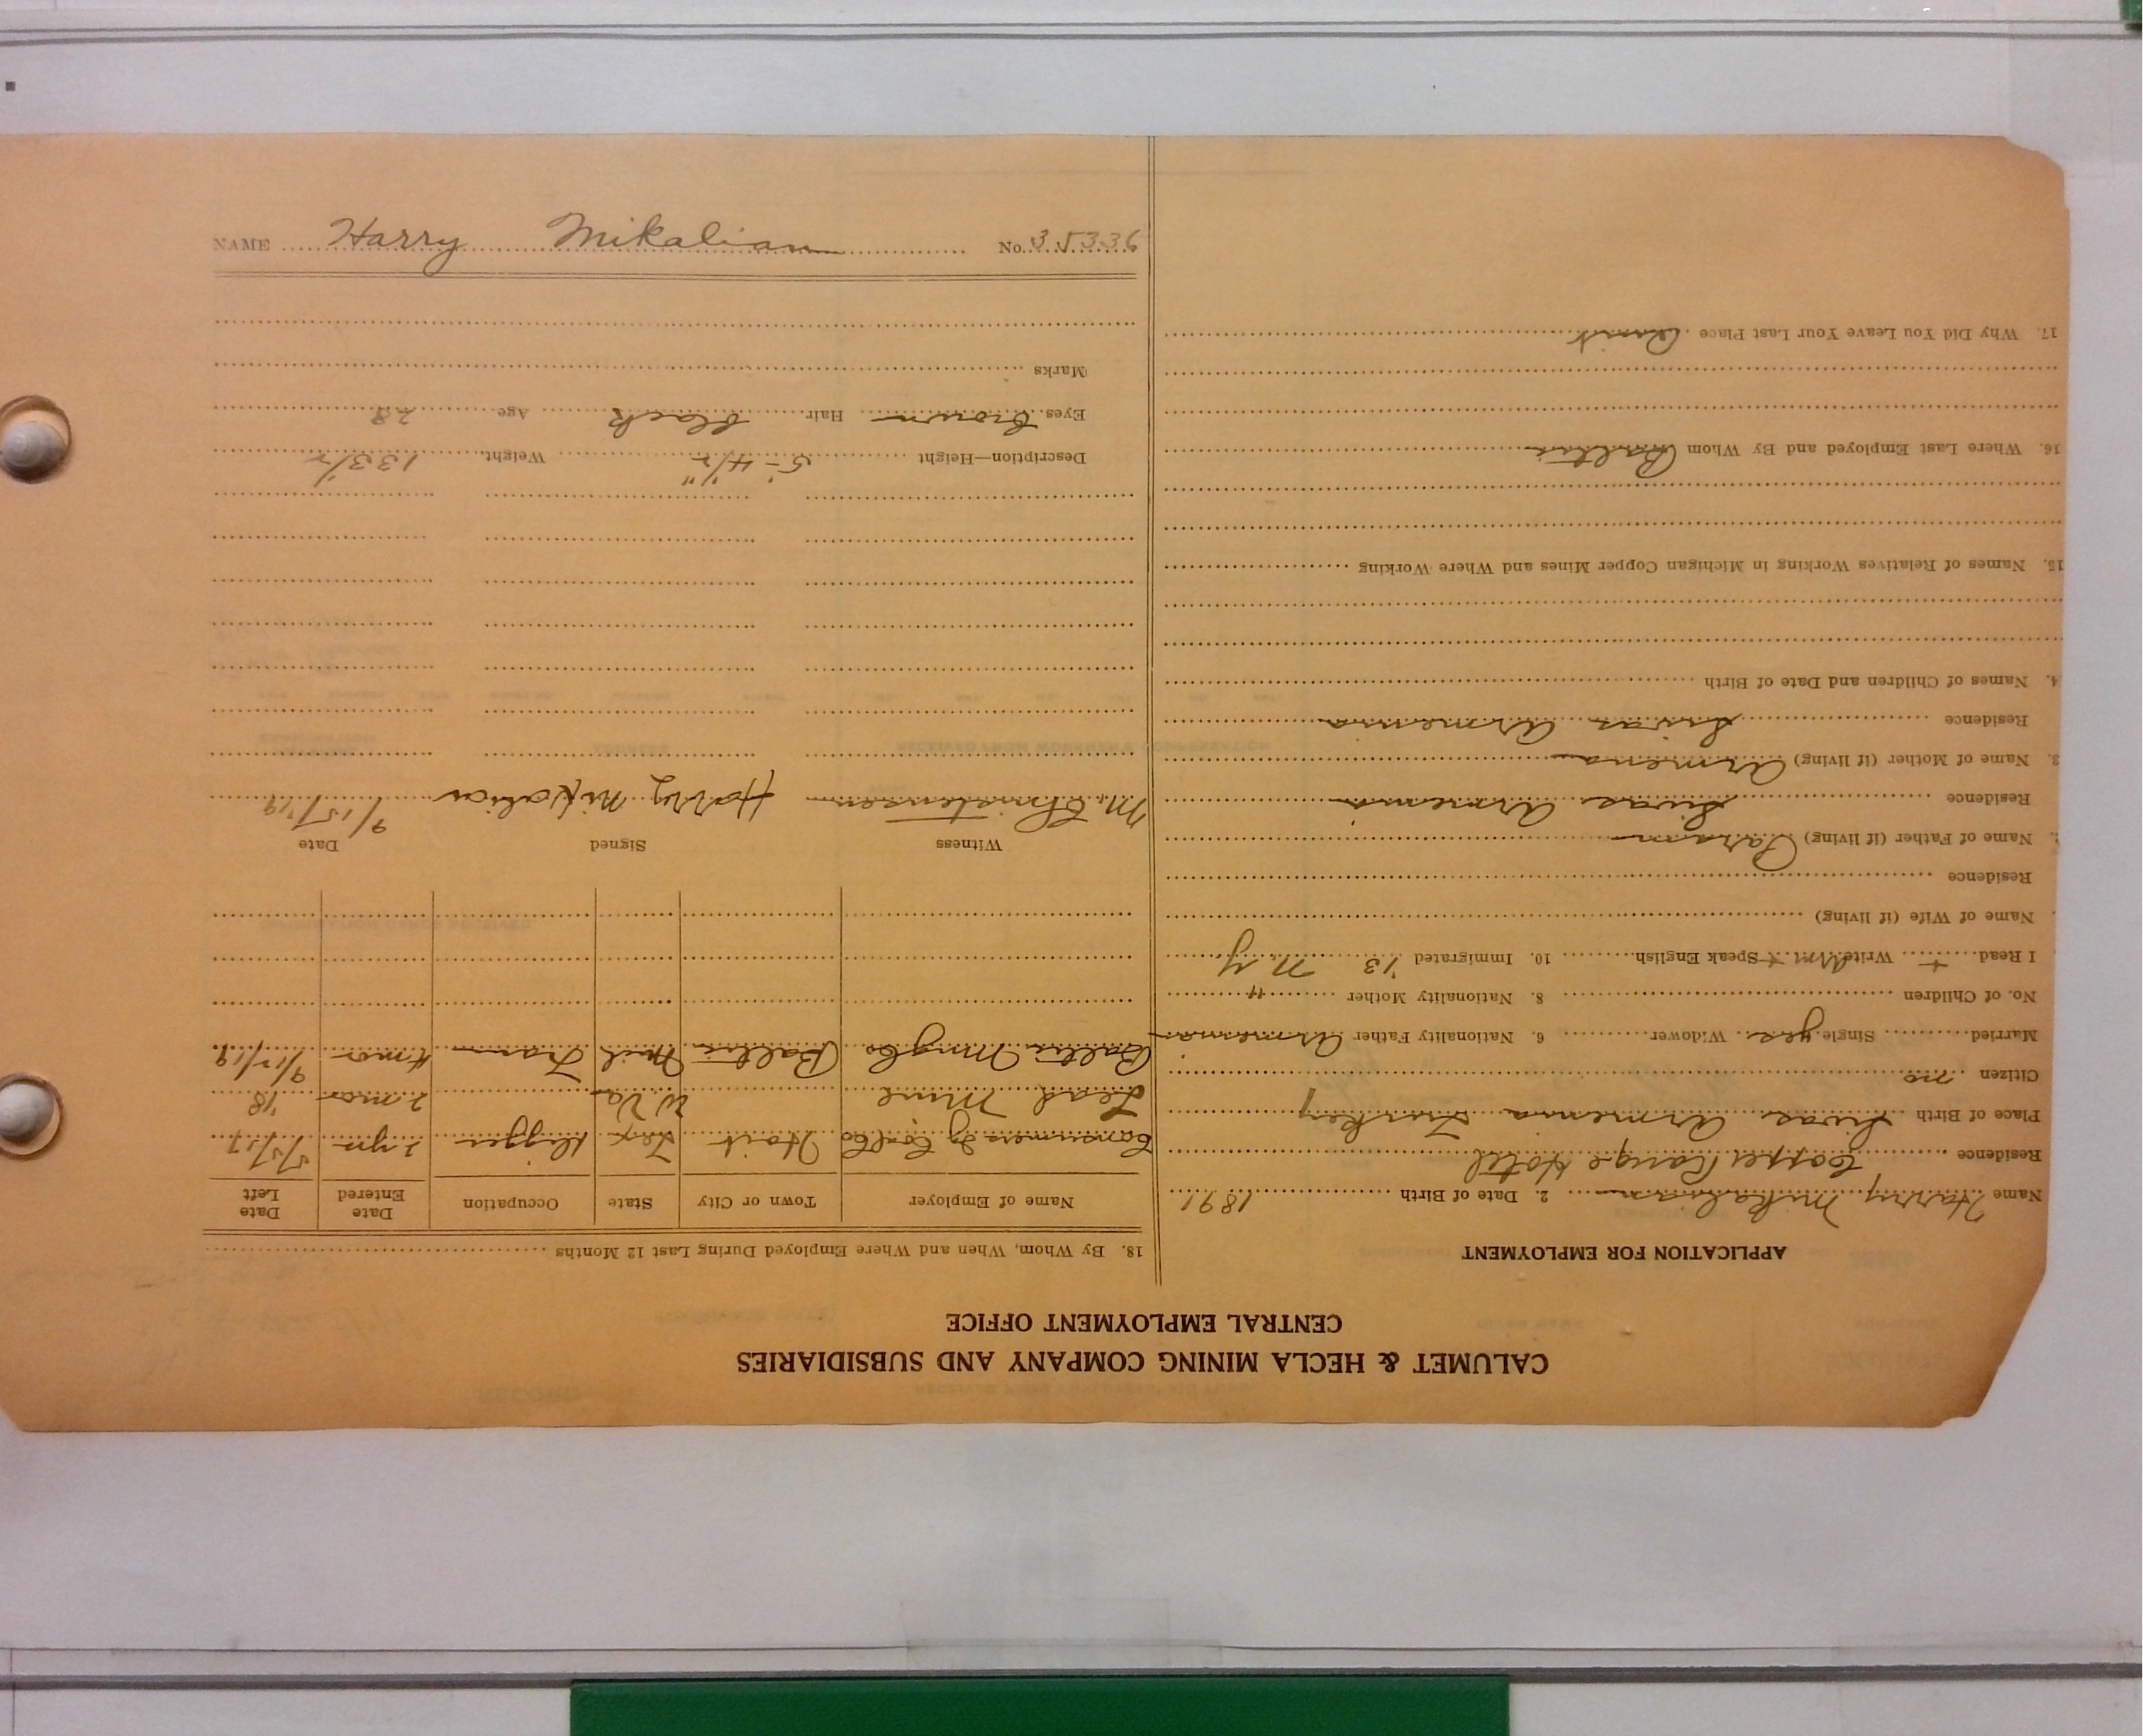 CALUMET & HECLA MINING COMPANY AND SUBSIDIARIES
CENTRAL EMPLOYMENT OFFICE
APPLICATION FOR EMPLOYMENT
Name Harry Mikalian 2. Date of Birth 1891
Residence Copper Range Hotel
Place of Birth Sivas Armenia Turkey
Citizen no
Married Single yes Widower 6. Nationality Father Armenian
No. of Children 8. Nationality Mother "
I Read + Write Arm + Speak English 10. Immigrated '13 N Y
Name of Wife (if living)
Residence
Name of Father (if living)
Residence Sivas Armenia
3. Name of Mother (if living) Armena
Residence Sivas Armenia
4. Names of Children and Date of Birth
15. Names of Relatives Working in Michigan Copper Mines and Where Working
16. Where Last Employed and By Whom Baltic
17. Why Did You Leave Your Last Place Quit
18. By Whom, When and Where Employed During Last 12 Months
Name of Employer Town or City State Occupation Date Entered Date Left
Consumers Coal Co 2 yrs 5/5/17
Lead Mine W Va 2 mos '18
Baltic Mng Co Baltic Mich Tram 4 mos 9/12/19
Witness Signed Date
M. Christensen Harry Mikalian 9/15/19
Description—Height 5'-4 1/2" Weight 133 1/2
Eyes brown Hair black Age 28
Marks
NAME Harry Mikalian No. 35336